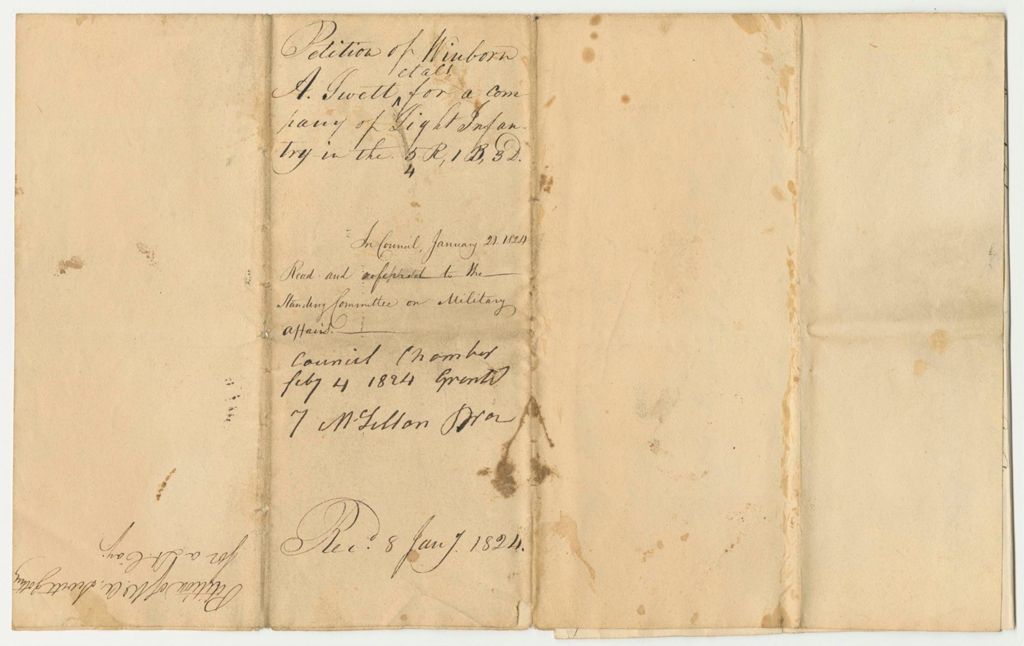 Petition of Winborn
et als
A. Swett, ^ for a com
pany of Light Infan-
try in the 5 R, 1 B, 3 D.
4
In Council, January 21. 1824
Read and referred to the
Standing Committee on Military
affairs.
Council Chamber
feby 4 1824 Granted
Recd. 8 Jany. 1824.
Petition of W. A. Swett & others
for a Lt. Coy.